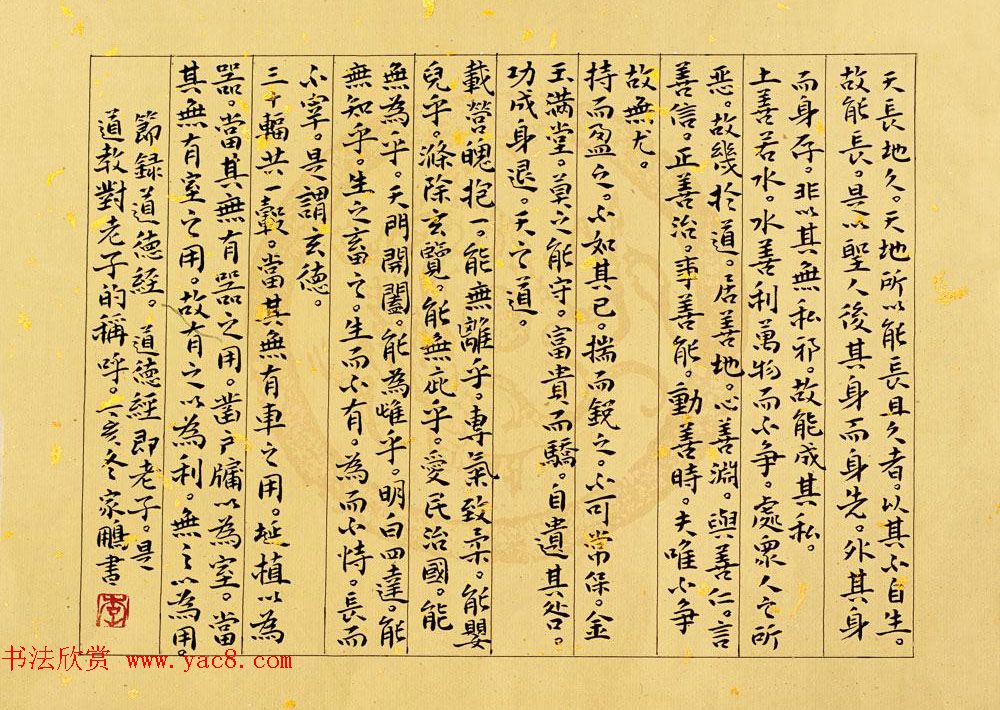 天長地久。天地所以能長且久者。以其不自生。
故能長。是以聖人後其身而身先。外其身
而身存。非以其無私邪。故能成其私。
上善若水。水善利萬物而不争。處衆人之所
惡。故幾於道。居善地。心善淵。與善仁。言
善信。正善治。事善能。動善時。夫唯不争
故無尤。
持而盈之。不如其已。揣而銳之。不可常保。金
玉满堂。莫之能守。富貴而驕。自遺其咎。
功成身退。天之道。
載營魄抱一。能無離乎。專氣致柔。能嬰
兒乎。滌除玄覽。能無疵乎。愛民治國。能
無為乎。天門開闔。能為雌乎。明白四達。能
無知乎。生之畜之。生而不有。為而不恃。長而
不宰。是謂玄德。
三十輻共一轂。當其無有車之用。埏植以為
器。當其無有器之用。凿户牖以為室。當
其無有室之用。故有之以為利。無之以為用。
節録道德經。道德經即老子。是
道教對老子的稱呼。亥冬家鵬書
李
书法欣赏 www.yac8.com